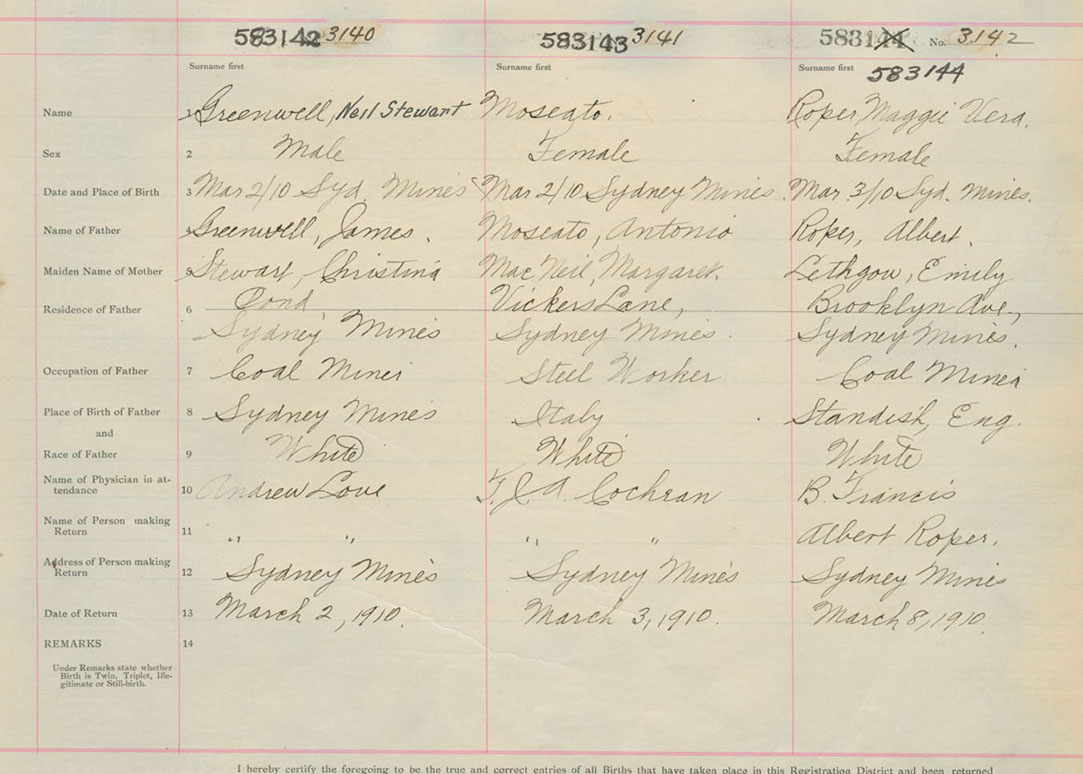 583142 3140 583143 3141 583144 No. 3142
Surname first Surname first Surname first 583144
Name 1 Greenwell, Neil Stewart Moscato. Roper, Maggie Vera.
Sex 2 Male Female Female
Date and Place of Birth 3 Mar 2/10 Syd. Mines Mar 2/10 Sydney Mines. Mar 3/10 Syd. Mines.
Name of Father 4 Greenwell, James. Moscato, Antonio Roper, Albert.
Maiden Name of Mother 5 Stewart, Christina MacNeil, Margaret. Lethgow, Emily
Residence of Father 6 Pond Vickers Lane, Brooklyn Ave.,
Sydney Mines Sydney Mines. Sydney Mines.
Occupation of Father 7 Coal Miner Steel Worker Coal Miner
Place of Birth of Father 8 Sydney Mines Italy Standish, Eng.
and
Race of Father 9 White White White
Name of Physician in at-
tendance 10 Andrew Love T.J.A. Cochran B. Francis
Name of Person making
Return 11 " " " " Albert Roper.
Address of Person making
Return 12 Sydney Mines Sydney Mines Sydney Mines
Date of Return 13 March 2, 1910. March 3, 1910. March 8, 1910.
REMARKS 14
Under Remarks state whether
Birth is Twin, Triplet, Ille-
gitimate or Still-birth.
I hereby certify the foregoing to be the true and correct entries of all Births that have taken place in this Registration District and been returned